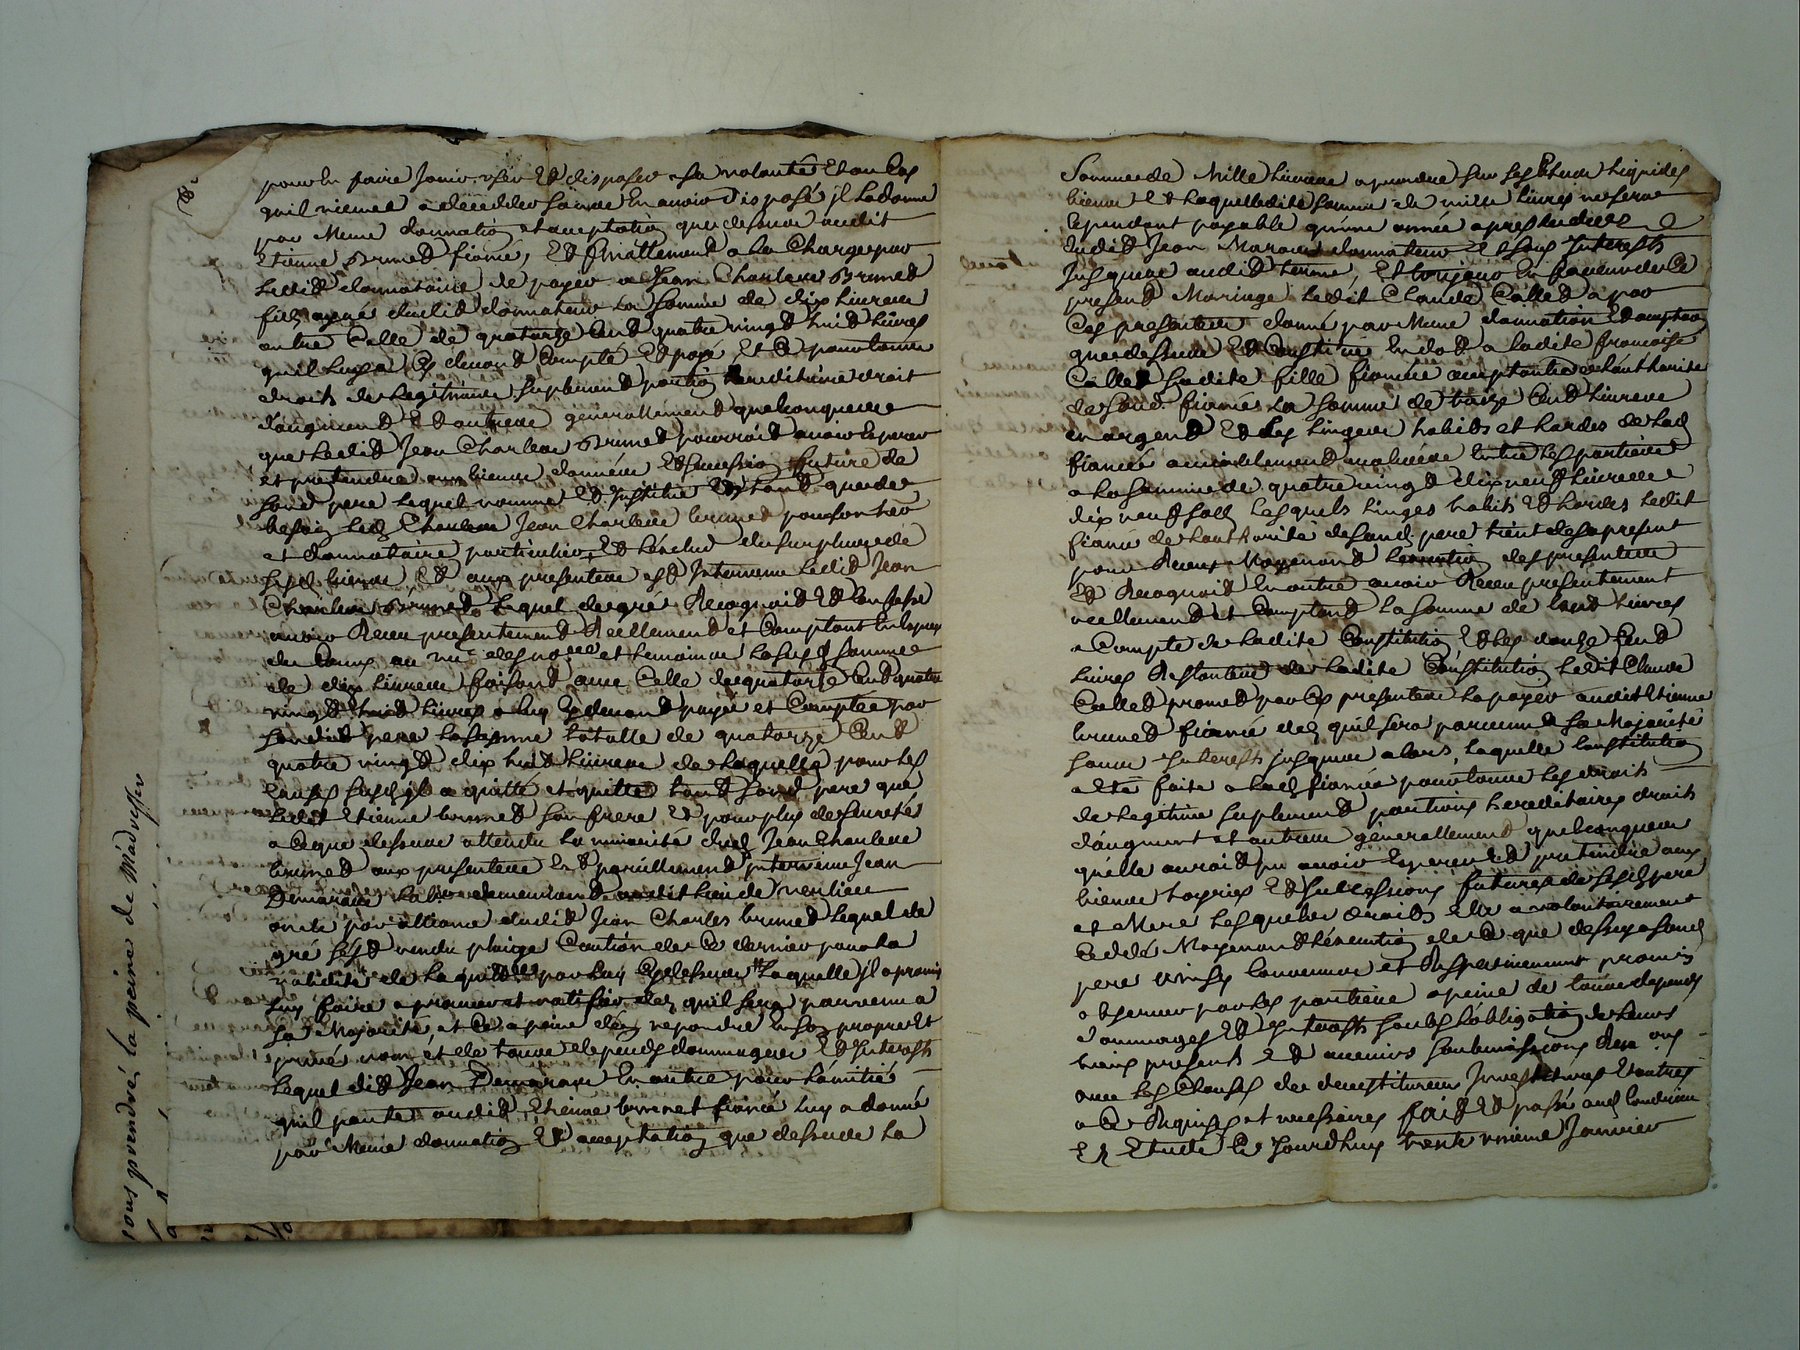 pour En faire Jouir user Et disposer a sa volonté Et au Cas
quil vienne a decedder sans En avoir disposé jl La donne
par Meme donnation et acceptation que dessus audit
Etienne Brunet fiancé, Et finallement a La Charge par
Ledit donnataire de payer a Jean Charles Brunet
fils ayné dudit donnateur La somme de dix Livres
outre Celle de quatorze Cent quatre vingt huit Livres
quil Luy a Cy devant Compté Et payé, Et Ce pour tous
droits de Legitime suplement portion hereditaire droit
d'augment Et autres generallement quelconques
que Ledit Jean Charles Brunet pourroit avoir Esperer
et pretendre aux biens donnés Et succession future de
sond pere Lequel nomme Et Jnstitue En tant que de
besoin Led Jean Charles brunet pour son her
et donnataire particulier, Et L'exclud du surplus de
sesd biens Et aux presentes est Jntervenu Ledit Jean
Charles Brunet Lequel de gré Recognoit Et Confesse
avoir Receu presentement Reellement et Comptant
du Cours au veu des no.res et temoins La susd somme
de dix Livres faisant avec Celle de quatorze Cent quatre
vingt huit Livres a Luy Cy devant payée et Comptée par
sondit pere La somme totalle de quatorze Cent
quatre vingt dix huit Livres de Laquelle pour Les
Causes susd jl a quitté et quitte tant sond pere que
Ledit Etienne brunet son frere Et pour plus de sureté
a Ce que dessus attendu La minorité dud Jean Charles
brunet aux presentes Est pareillement Intervenu Jean
Demarare demeurant audit Lieu de
oncle par alliance dudit Jean Charles brunet Lequel de
gré s'est rendu pleige Caution de Ce dernier pour La
validité de La quittance par Luy Cy dessus Laquelle jl a promis
Luy faire aprouver et ratiffier des quil sera parvenu a
sa Majorité, et Ce a peine d'en repondre En son propre Et
privé nom et de tous depends dommages Et Jnterests
Lequel dit Jean Demarare En outre pour L'amitié
quil porte audit Etienne brunet fiancé Luy a donné
par Meme donnation Et acceptation que dessus La
Somme de Mille Livres a prendre sur ses plus Liquides
biens Et Laquelledite somme de mille Livres ne sera
Cependant payable qu'une année apres Le deces
dudit Jean donnateur Et sans Jnterests
Jusques audit terme, Et toujours En faveur de Ce
present Mariage Ledit Claude Callet a par
Ces presentes donné par Meme donnation Et acceptaon
que dessus Et Constitué En dot a Ladite françoise
Callet sadite fille fiancée acceptante de L'authorité
de sond. fiancé La somme de treize Cent Livres
en argent Et Les Linges habits et hardes de Lad
fiancée amiablement evalués Entre Les parties
a La somme de quatre vingt dix neuf Livres
dix neuf sols Lesquels Linges habits Et hardes Ledit
fiancé de L'authorité de sond. pere tient des a present
pour Receus Moyenant L'execution des presentes
Et Recognoit En outre avoir Receu presentement
reellement et Comptant La somme de Cent Livres
a Compte de Ladite Constitution Et Les douze Cent
Livres Restantes de Ladite Constitution Ledit Claude
Callet promet par Ces presentes La payer audit Etienne
brunet fiancé des quil sera parvenu a sa Majorité
sans Jnterests jusques alors, Laquelle Constitution
a Eté faite a Lad fiancée pour tous Les droits
de Legitime suplement portions hereditaires droits
d'augment et autres generallement quelconques
qu'elle auroit pu avoir Esperer Et pretendre aux
biens hoyries Et successions futures de sesd pere
et Mere Lesquels droits Elle a volontairement
Ceddé Moyenant L'execution de Ce que dessus a sond
pere ainsy Convenu et Respectivement promis
observer par Les parties a peine de tous depends
dommages Et Jnterests sous L'obligation de Leurs
biens presents Et avenirs soubmissions
avec Les Clauses de devestitures Jnvestitures Et autres
a Ce Requises et necessaires fait Et passé aud Condrieu
En Etude Ce Jourdhuy trente unieme Janvier
sous prendre, la peine de M'adresser